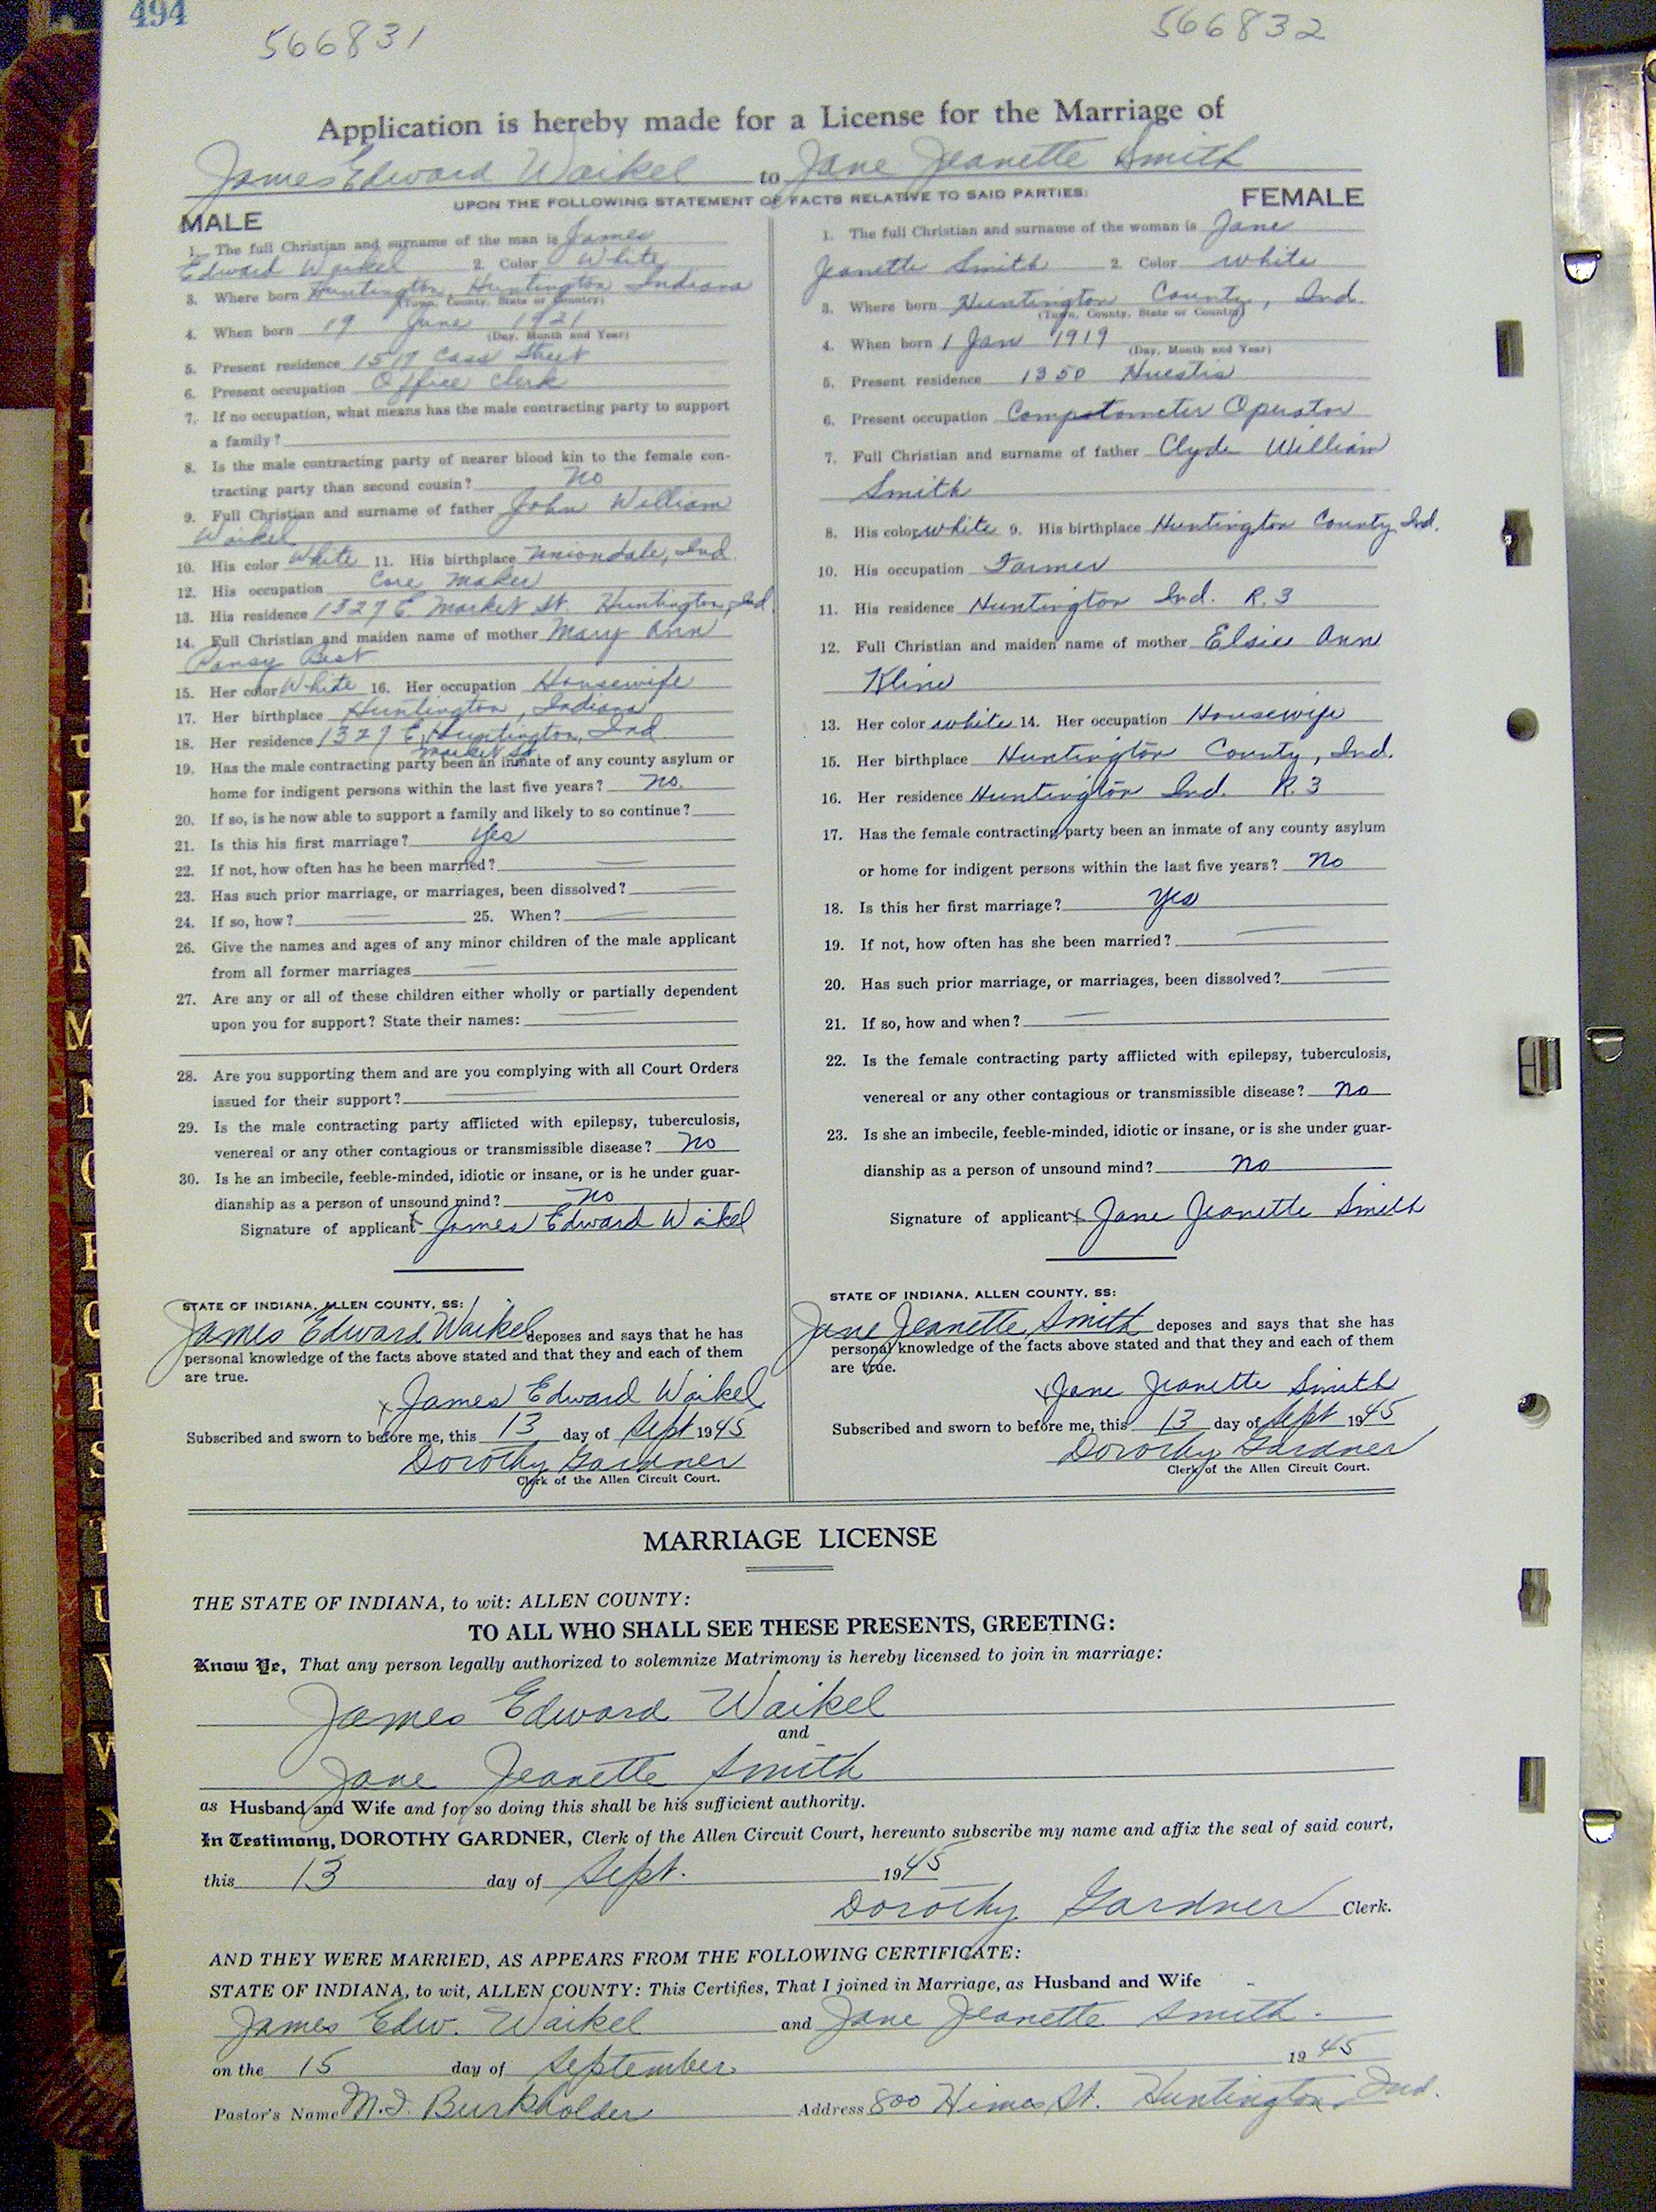 494
566831
566832
Application is hereby made for a License for the Marriage of
James Edward Waikel to Jane Jeanette Smith
UPON THE FOLLOWING STATEMENT OF FACTS RELATIVE TO SAID PARTIES:
MALE
1. The full Christian and surname of the man is James
Edward Waikel 2. Color White
3. Where born Huntington, Huntington Indiana
(Town, County, State or Country)
4. When born 19 June 1921
(Day, Month and Year)
5. Present residence 1519 Cass Street
6. Present occupation Office Clerk
7. If no occupation, what means has the male contracting party to support
a family?
8. Is the male contracting party of nearer blood kin to the female con-
tracting party than second cousin? No
9. Full Christian and surname of father John William
Waikel
10. His color White 11. His birthplace Uniondale, Ind
12. His occupation Core Maker
13. His residence 1327 E. Market St. Huntington, Ind.
14. Full Christian and maiden name of mother Mary Ann
Pansy Best
15. Her color White 16. Her occupation Housewife
17. Her birthplace Huntington, Indiana
18. Her residence 1327 E. Huntington, Ind.
Market St.
19. Has the male contracting party been an inmate of any county asylum or
home for indigent persons within the last five years? No.
20. If so, is he now able to support a family and likely to so continue?
21. Is this his first marriage? Yes
22. If not, how often has he been married?
23. Has such prior marriage, or marriages, been dissolved?
24. If so, how? 25. When?
26. Give the names and ages of any minor children of the male applicant
from all former marriages
27. Are any or all of these children either wholly or partially dependent
upon you for support? State their names:
28. Are you supporting them and are you complying with all Court Orders
issued for their support?
29. Is the male contracting party afflicted with epilepsy, tuberculosis,
venereal or any other contagious or transmissible disease? No
30. Is he an imbecile, feeble-minded, idiotic or insane, or is he under guar-
dianship as a person of unsound mind? No
Signature of applicant x James Edward Waikel
STATE OF INDIANA, ALLEN COUNTY, SS:
James Edward Waikel deposes and says that he has
personal knowledge of the facts above stated and that they and each of them
are true.
x James Edward Waikel
Subscribed and sworn to before me, this 13 day of Sept 1945
Dorothy Gardner
Clerk of the Allen Circuit Court.
FEMALE
1. The full Christian and surname of the woman is Jane
Jeanette Smith 2. Color White
3. Where born Huntington County, Ind.
(Town, County, State or Country)
4. When born 1 Jan 1919
(Day, Month and Year)
5. Present residence 1350 Huestis
6. Present occupation Comptometer Operator
7. Full Christian and surname of father Clyde William
Smith
8. His color White 9. His birthplace Huntington County Ind.
10. His occupation Farmer
11. His residence Huntington Ind. R.3
12. Full Christian and maiden name of mother Elsie Ann
Kline
13. Her color white 14. Her occupation Housewife
15. Her birthplace Huntington County, Ind.
16. Her residence Huntington Ind. R.3
17. Has the female contracting party been an inmate of any county asylum
or home for indigent persons within the last five years? No
18. Is this her first marriage? Yes
19. If not, how often has she been married?
20. Has such prior marriage, or marriages, been dissolved?
21. If so, how and when?
22. Is the female contracting party afflicted with epilepsy, tuberculosis,
venereal or any other contagious or transmissible disease? No
23. Is she an imbecile, feeble-minded, idiotic or insane, or is she under guar-
dianship as a person of unsound mind? No
Signature of applicant x Jane Jeanette Smith
STATE OF INDIANA, ALLEN COUNTY, SS:
Jane Jeanette Smith deposes and says that she has
personal knowledge of the facts above stated and that they and each of them
are true.
x Jane Jeanette Smith
Subscribed and sworn to before me, this 13 day of Sept 1945
Dorothy Gardner
Clerk of the Allen Circuit Court.
MARRIAGE LICENSE
THE STATE OF INDIANA, to wit: ALLEN COUNTY:
TO ALL WHO SHALL SEE THESE PRESENTS, GREETING:
Know Ye, That any person legally authorized to solemnize Matrimony is hereby licensed to join in marriage:
James Edward Waikel
and
Jane Jeanette Smith
as Husband and Wife and for so doing this shall be his sufficient authority.
In Testimony, DOROTHY GARDNER, Clerk of the Allen Circuit Court, hereunto subscribe my name and affix the seal of said court,
this 13 day of Sept. 1945
Dorothy Gardner Clerk.
AND THEY WERE MARRIED, AS APPEARS FROM THE FOLLOWING CERTIFICATE:
STATE OF INDIANA, to wit, ALLEN COUNTY: This Certifies, That I joined in Marriage, as Husband and Wife
James Edw. Waikel and Jane Jeanette Smith.
on the 15 day of September 1945
Pastor's Name M.I. Burkholder Address 800 Himes St. Huntington, Ind.